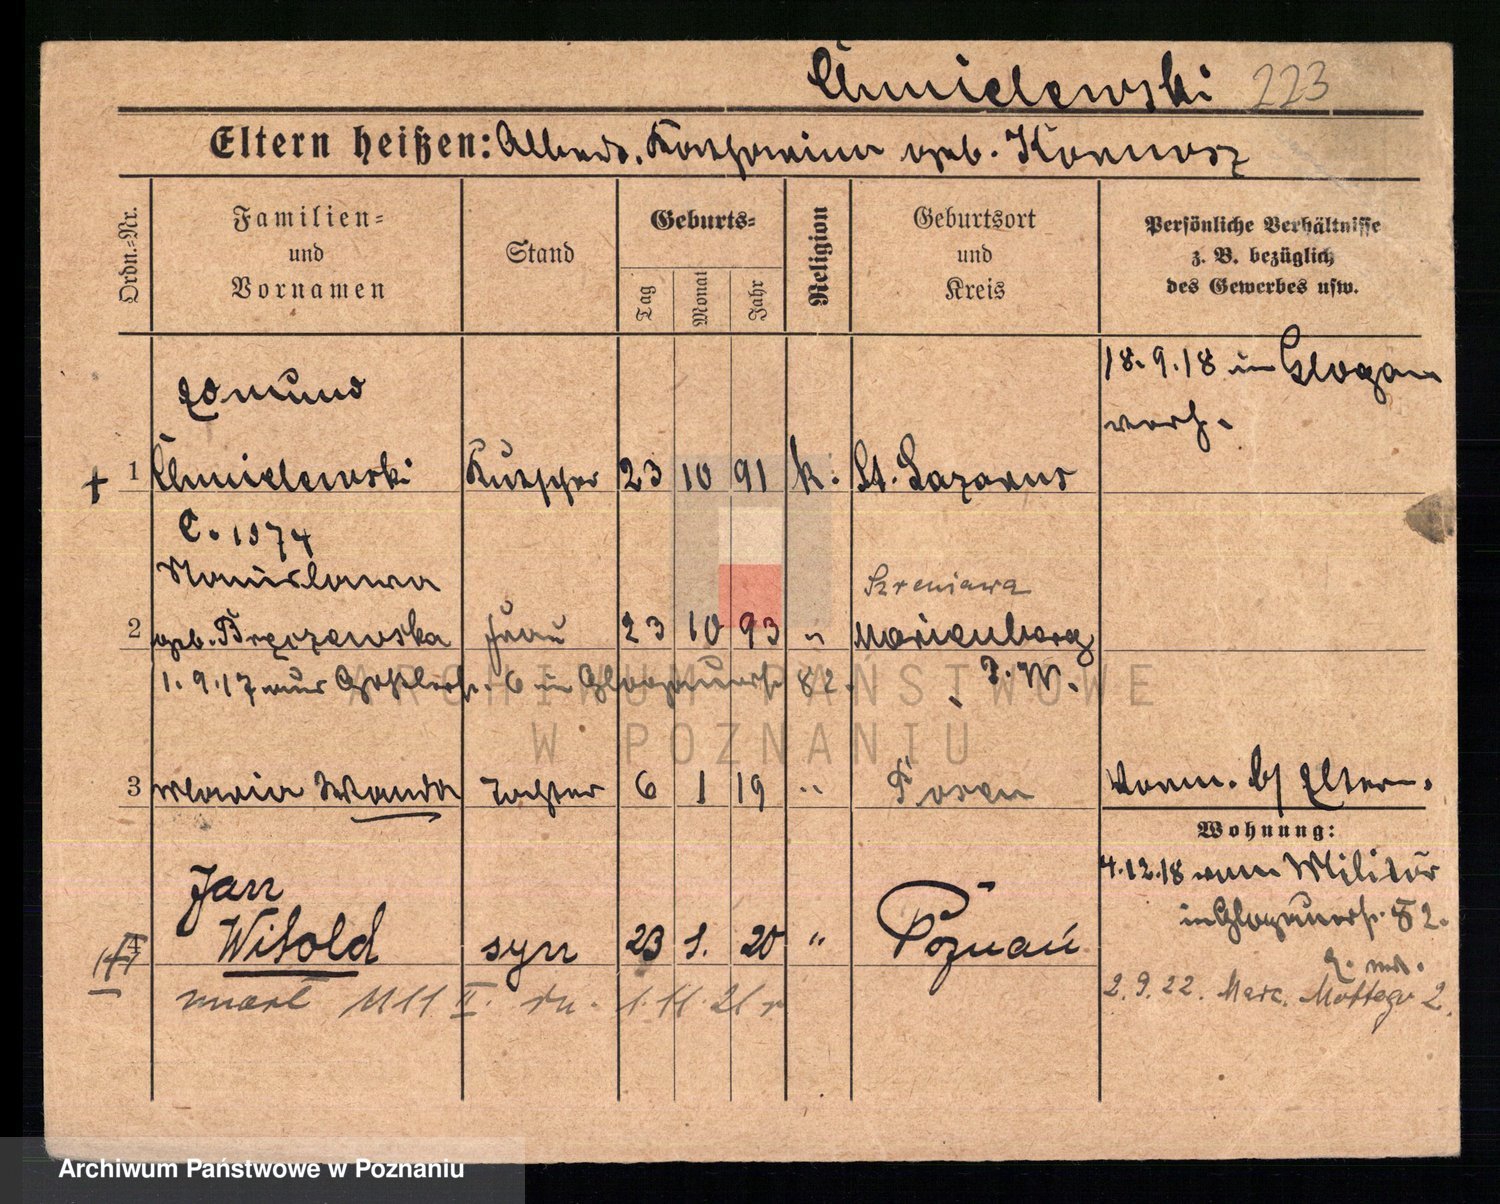 Chmielewski 223
Eltern heißen: Albert, Katharina geb. Kornosz
Ordn.=Nr.
Familien=
und
Vornamen
Stand
Geburts=
Tag
Monat
Jahr
Religion
Geburtsort
und
Kreis
Persönliche Verhältnisse
z. B. bezüglich
des Gewerbes usw.
18.9.18 in Glogau
verh.
Edmund
+ 1 Chmielewski Kutscher 23 10 91 k. St. Lazarus
C. 1974
Stanislawa Szreniawa
2 geb. Brzezewska Frau 23 10 93 " Marienberg
P. W.
1.9.17 aus 6 in Glogauerst. 82.
3 Maria Wanda Tochter 6 1 19 " Posen Vorm. b/ Eltern.
Wohnung:
4.12.18 vom Militär
in Glogauerst. 82.
Jan
4 Witold syn 23 1. 20 " Poznań
zmarł II. dn. 1.11.21 r
2.9.22. Marc. Mottego 2.
ARCHIWUM PAŃSTWOWE
W POZNANIU
Archiwum Państwowe w Poznaniu